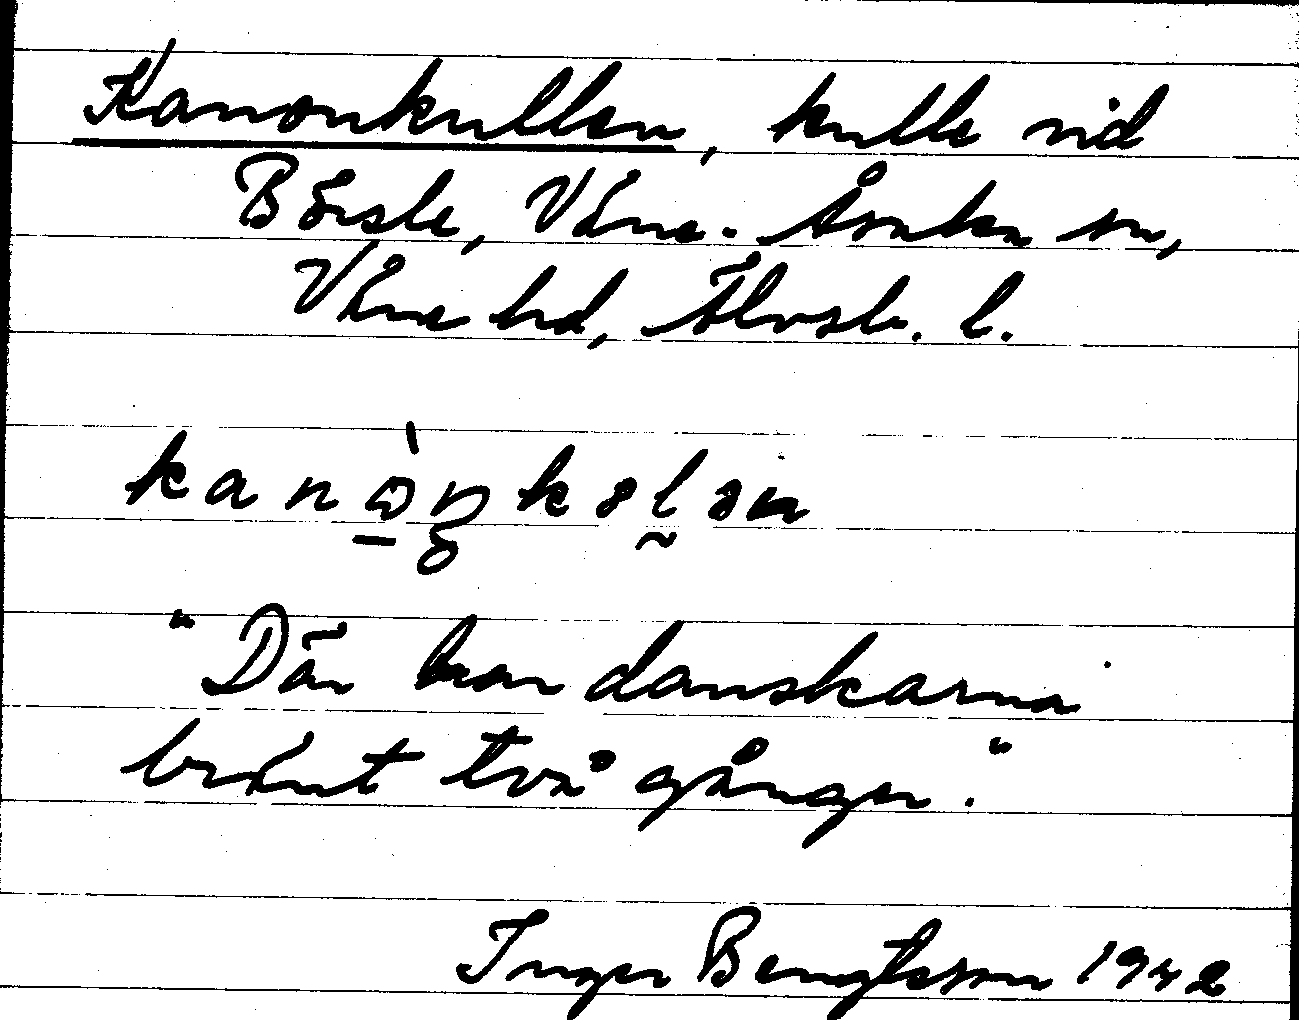 Kanonkullen, kulle vid
Börsle, Väne-Åsaka sn,
Väne hd, Älvsb. l.
kanòŋkolən
"Där har danskarna
bränt två gånger."
Inger Bengtsson 1942